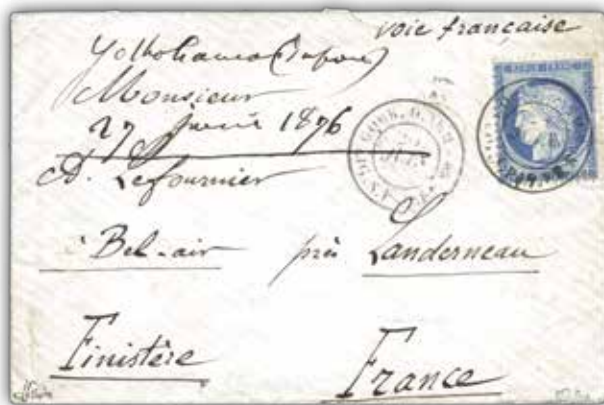 voie française
Yokohama (Japon)
Monsieur
27 1876
A. Lefournier
à Bel-air près Landerneau
Finistère France
CORR. D. ARM.